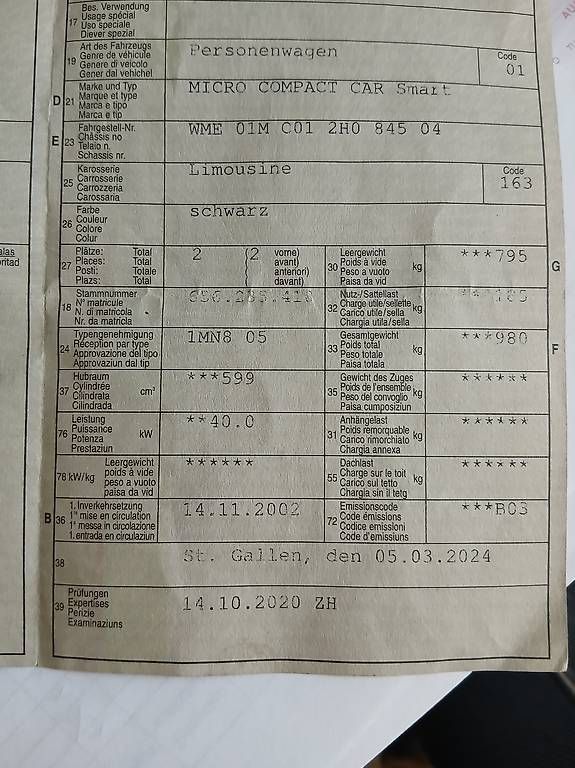 17 Bes. Verwendung
Usage spécial
Uso speciale
Diever spezial
19 Art des Fahrzeugs
Genre de véhicule
Genere di veicolo
Gener dal vehichel
Personenwagen
Code
01
D 21 Marke und Typ
Marque et type
Marca e tipo
Marca e tip
MICRO COMPACT CAR Smart
E 23 Fahrgestell-Nr.
Châssis no
Telaio n.
Schassis nr.
WME 01M C01 2H0 845 04
25 Karosserie
Carrosserie
Carrozzeria
Carossaria
Limousine
Code
163
26 Farbe
Couleur
Colore
Colur
schwarz
27 Plätze: Total
Places: Total
Posti: Totale
Plazs: Total
2 (2 vorne)
avant)
anteriori)
davant)
30 Leergewicht
Poids à vide
Peso a vuoto
Paisa da vid
kg
***795
G
18 Stammnummer
N° matricule
N. di matricola
Nr. da matricla
32 Nutz-/Sattellast
Charge utile/sellette
Carico utile/sella
Chargia utila/sella
kg
24 Typengenehmigung
Réception par type
Approvazione del tipo
Approvaziun dal tip
1MN8 05
33 Gesamtgewicht
Poids total
Peso totale
Paisa totala
kg
***980
F
37 Hubraum
Cylindrée
Cilindrata
Cilindrada
cm³
***599
35 Gewicht des Zuges
Poids de l'ensemble
Peso del convoglio
Paisa cumposiziun
kg
******
76 Leistung
Puissance
Potenza
Prestaziun
kW
**40.0
31 Anhängelast
Poids remorquable
Carico rimorchiato
Chargia annexa
kg
******
78 kW/kg Leergewicht
poids à vide
peso a vuoto
paisa da vid
******
55 Dachlast
Charge sur le toit
Carico sul tetto
Chargia sin il tetg
kg
******
B 36 1. Inverkehrsetzung
1re mise en circulation
1a messa in circolazione
1. entrada en circulaziun
14.11.2002
72 Emissionscode
Code émissions
Codice emissioni
Code d'emissiuns
***B03
38 St. Gallen, den 05.03.2024
39 Prüfungen
Expertises
Perizie
Examinaziuns
14.10.2020 ZH